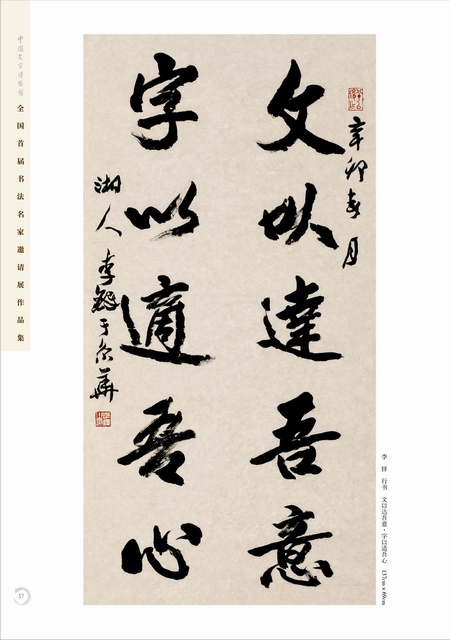 中国文字博物馆
全国首届书法名家邀请展作品集
辛卯春月
文以達吾意
字以適吾心
湖人李鐸于京華
李 铎 行书 文以达吾意·字以适吾心 137cm×69cm
37